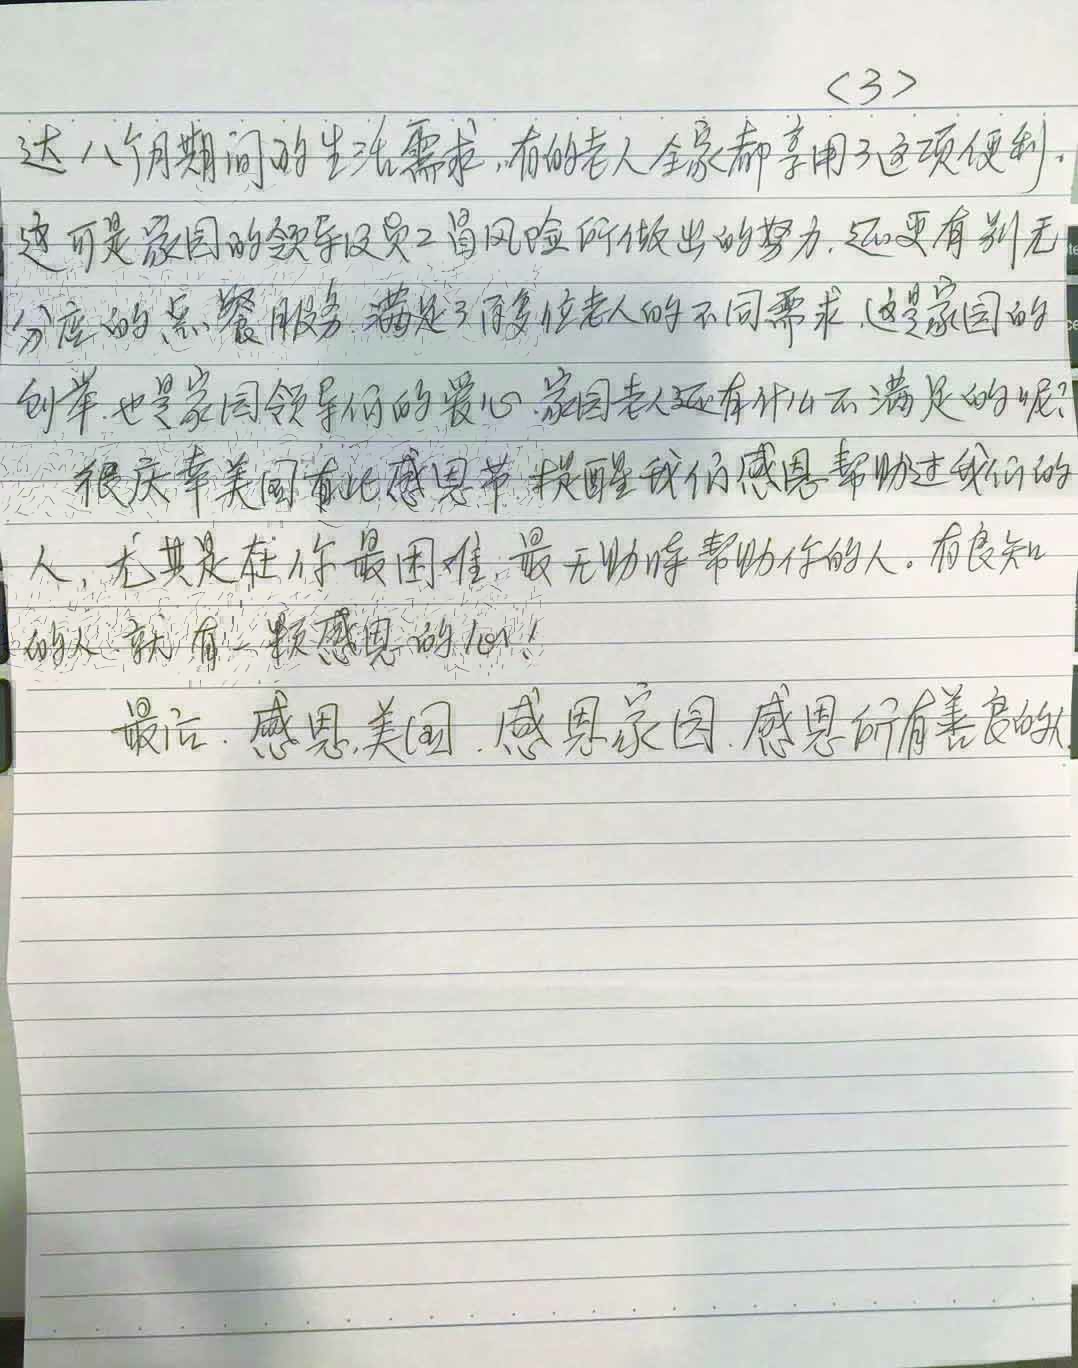 <3>
达八个月期间的生活需求,有的老人全家都享用了这项便利。
这可是家园的领导及员工冒风险所做出的努力.还更有别无
分店的点餐服务.满足了百多位老人的不同需求.这是家园的
创举.也是家园领导们的爱心.家园老人还有什么不满足的呢?
很庆幸美国有此感恩节 提醒我们感恩帮助过我们的
人,尤其是在你最困难.最无助时帮助你的人。有良知
的人.就有一颗感恩的心!
最后.感恩美国.感恩家园.感恩所有善良的人.